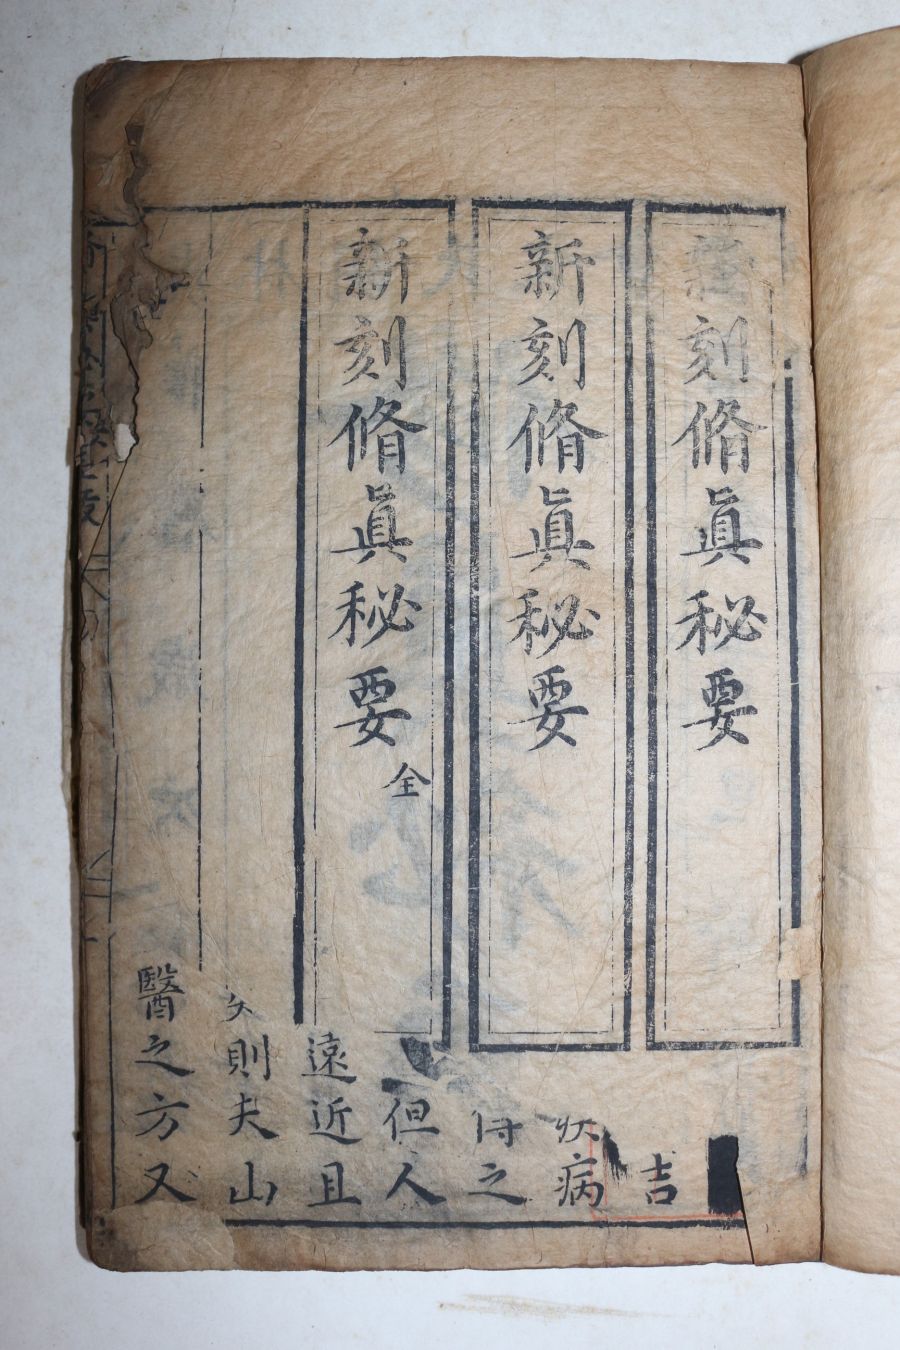 新刻脩眞秘要
新刻脩眞秘要
新刻脩眞秘要 全
吉
病
之
但人
遠近且
則夫山
醫之方又